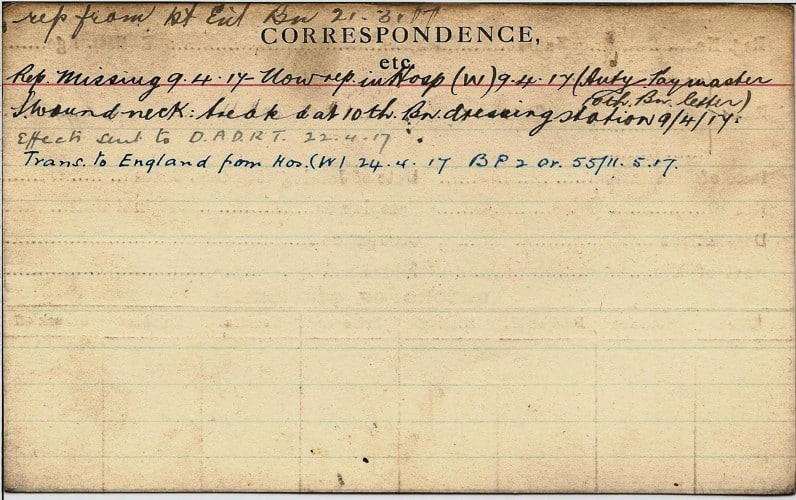 rep from 1st Ent Bn 21.3.17
CORRESPONDENCE,
etc.
Rep. Missing 9.4.17 Now rep. in Hosp (W) 9.4.17 (Auty Paymaster
Bn. letter)
wound neck: at 10th. Bn. dressing station 9/4/17.
Effects sent to D.A.D.R.T. 22.4.17
Trans. to England from Hos. (W) 24.4.17 BP 2 or. 55/11.5.17.